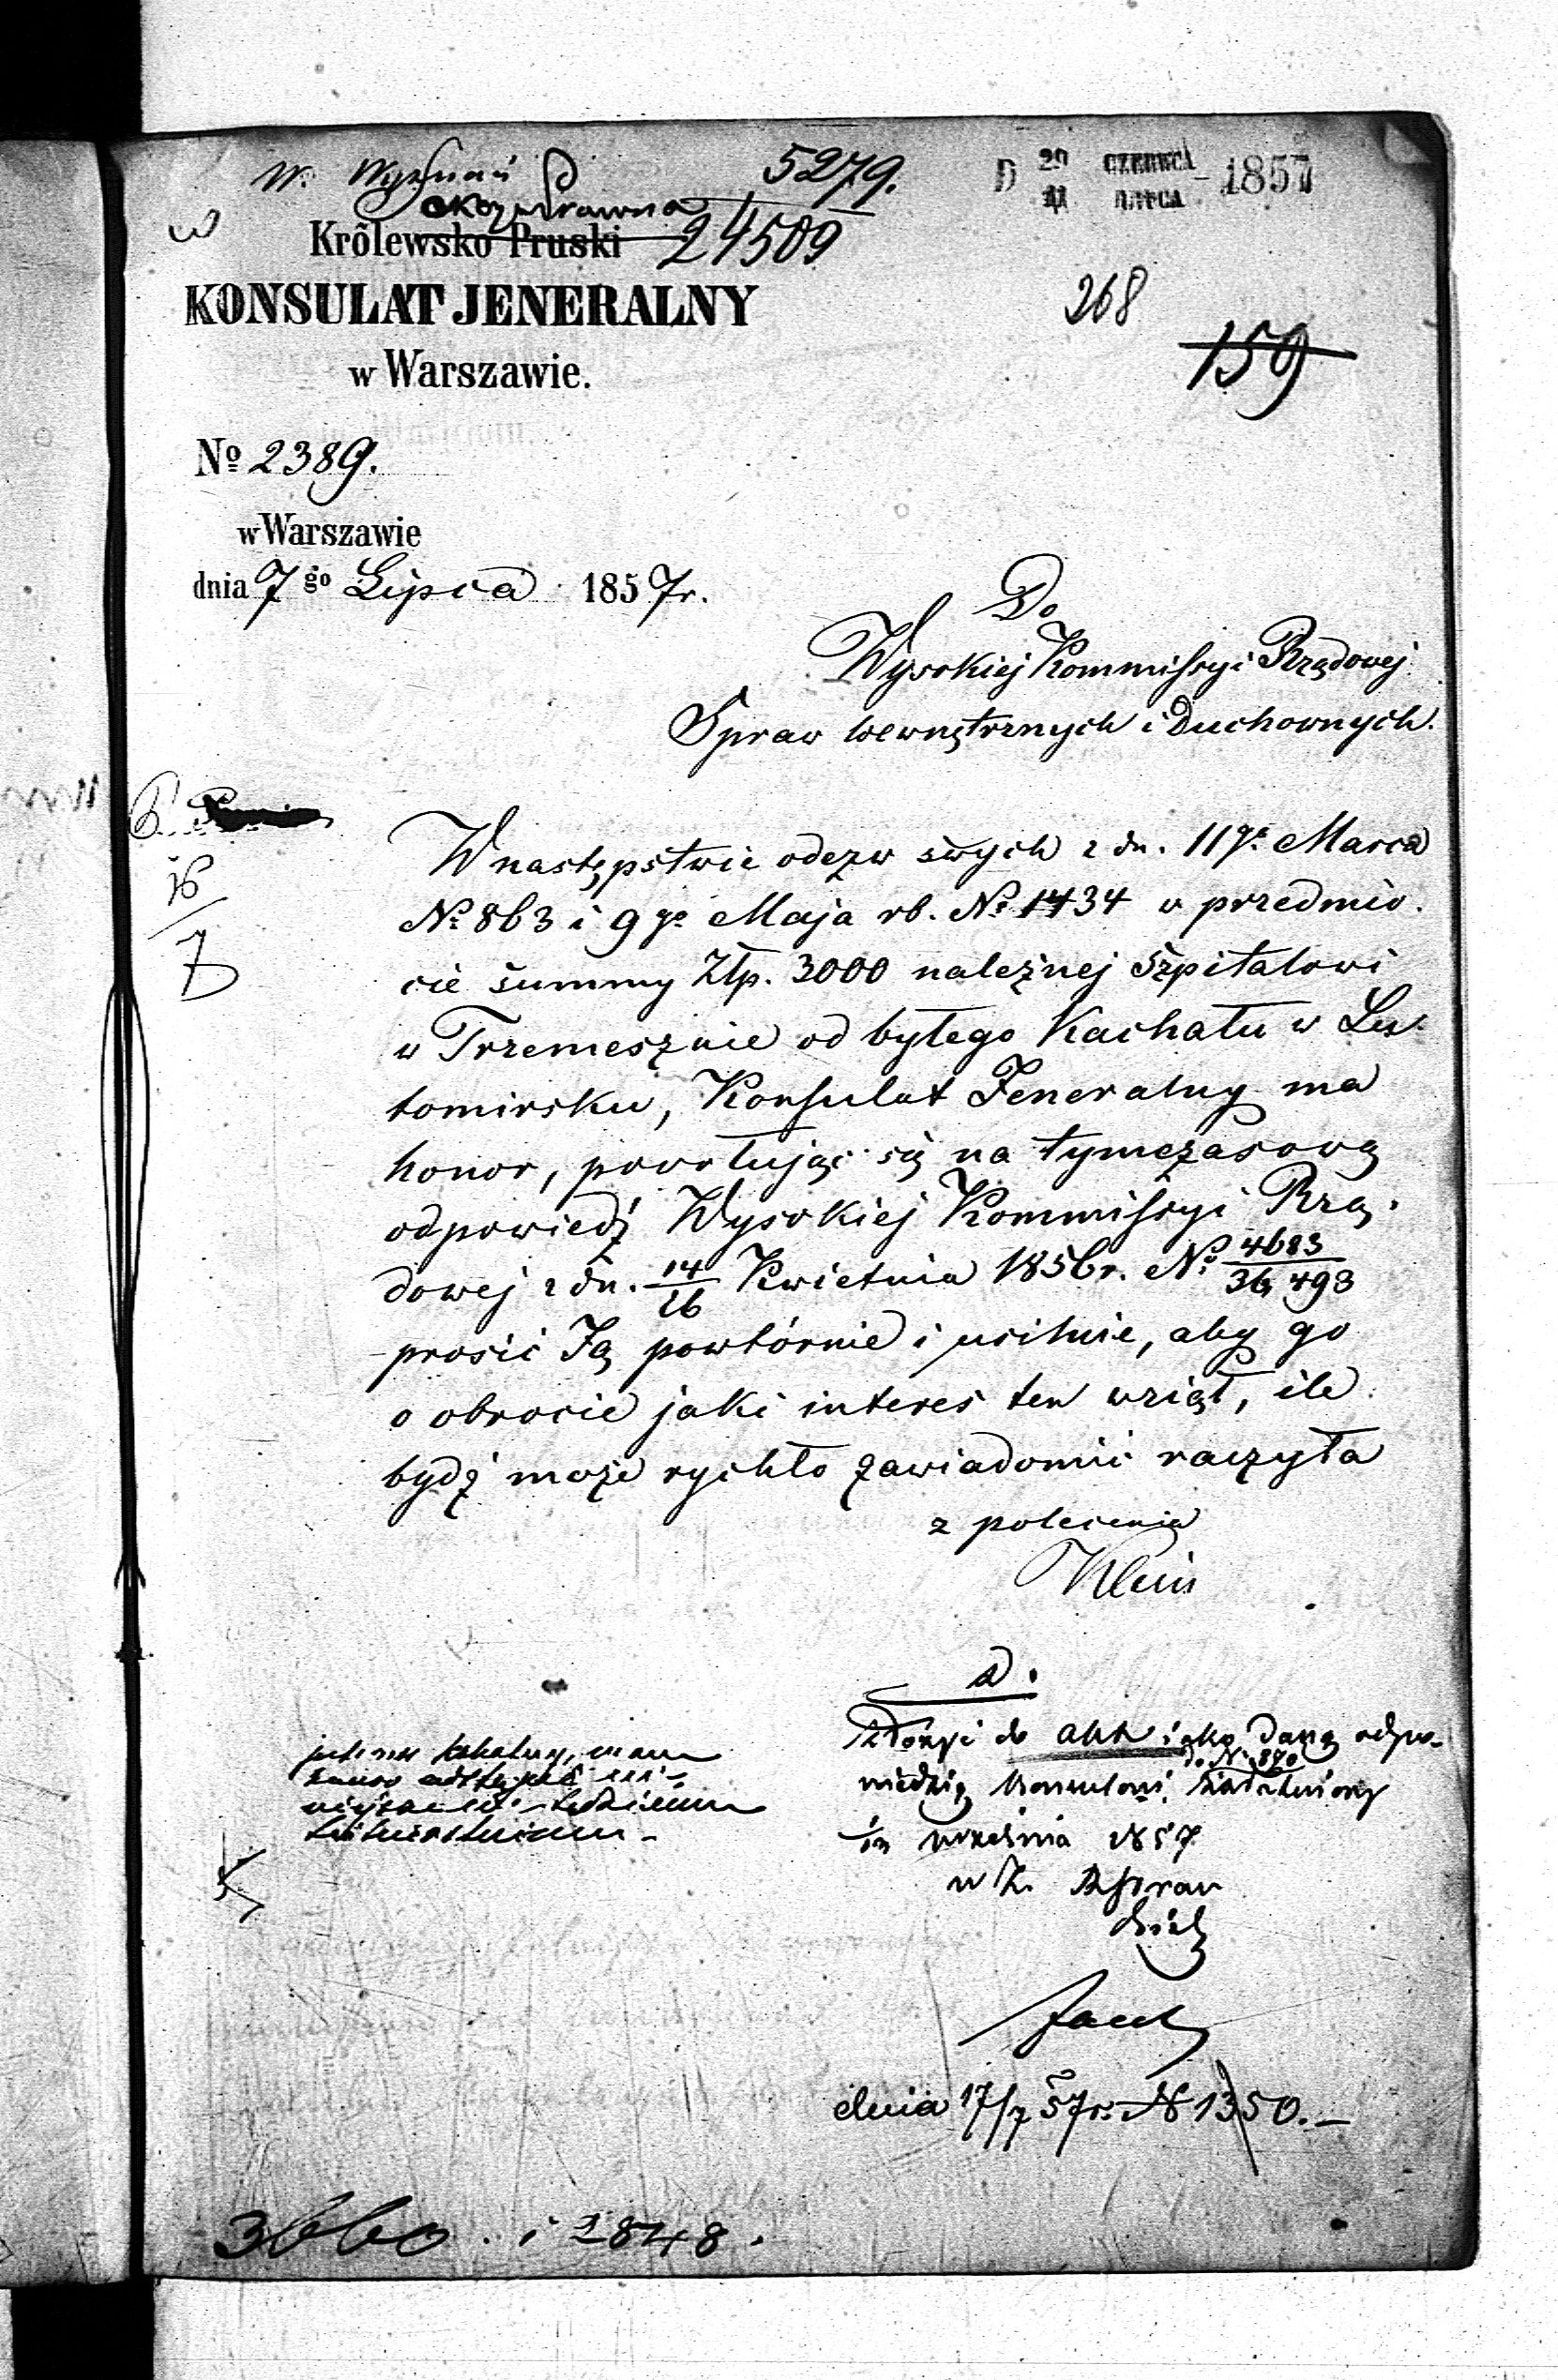 W. Wyznań
5279.
24509
D 29 CZERWCA 1857
11 LIPCA
w
Królewsko Pruski
KONSULAT JENERALNY
w Warszawie.
268
159
No 2389.
w Warszawie
dnia 7go Lipca 1857r.
Do
Wysokiej Kommissyi Rządowej
Spraw Wewnętrznych i Duchownych.
16
7
W następstwie odezw swych z dn. 11go Marca
No 863 i 9go Maja rb. No 1434 w przedmio-
cie summy Złp. 3000 należnej Szpitalowi
w Trzemesznie od byłego Kachału w Lu-
tomirsku, Konsulat Jeneralny ma
honor, powołując się na tymczasową
odpowiedź Wysokiej Kommissyi Rzą-
dowej z dn. 14/26 Kwietnia 1856r. No 4683/36,493
prosić Ją powtórnie i usilnie, aby go
o obrocie jaki interes ten wziął, ile
bydź może rychło zawiadomić raczyła
z polecenia
Klein
D.
Złożyć do akt jako daną odpo-
wiedzią Konsulowi
września 1857
w Z.
dnia 17/7 57r. N 1350.-
3660. i 2848.